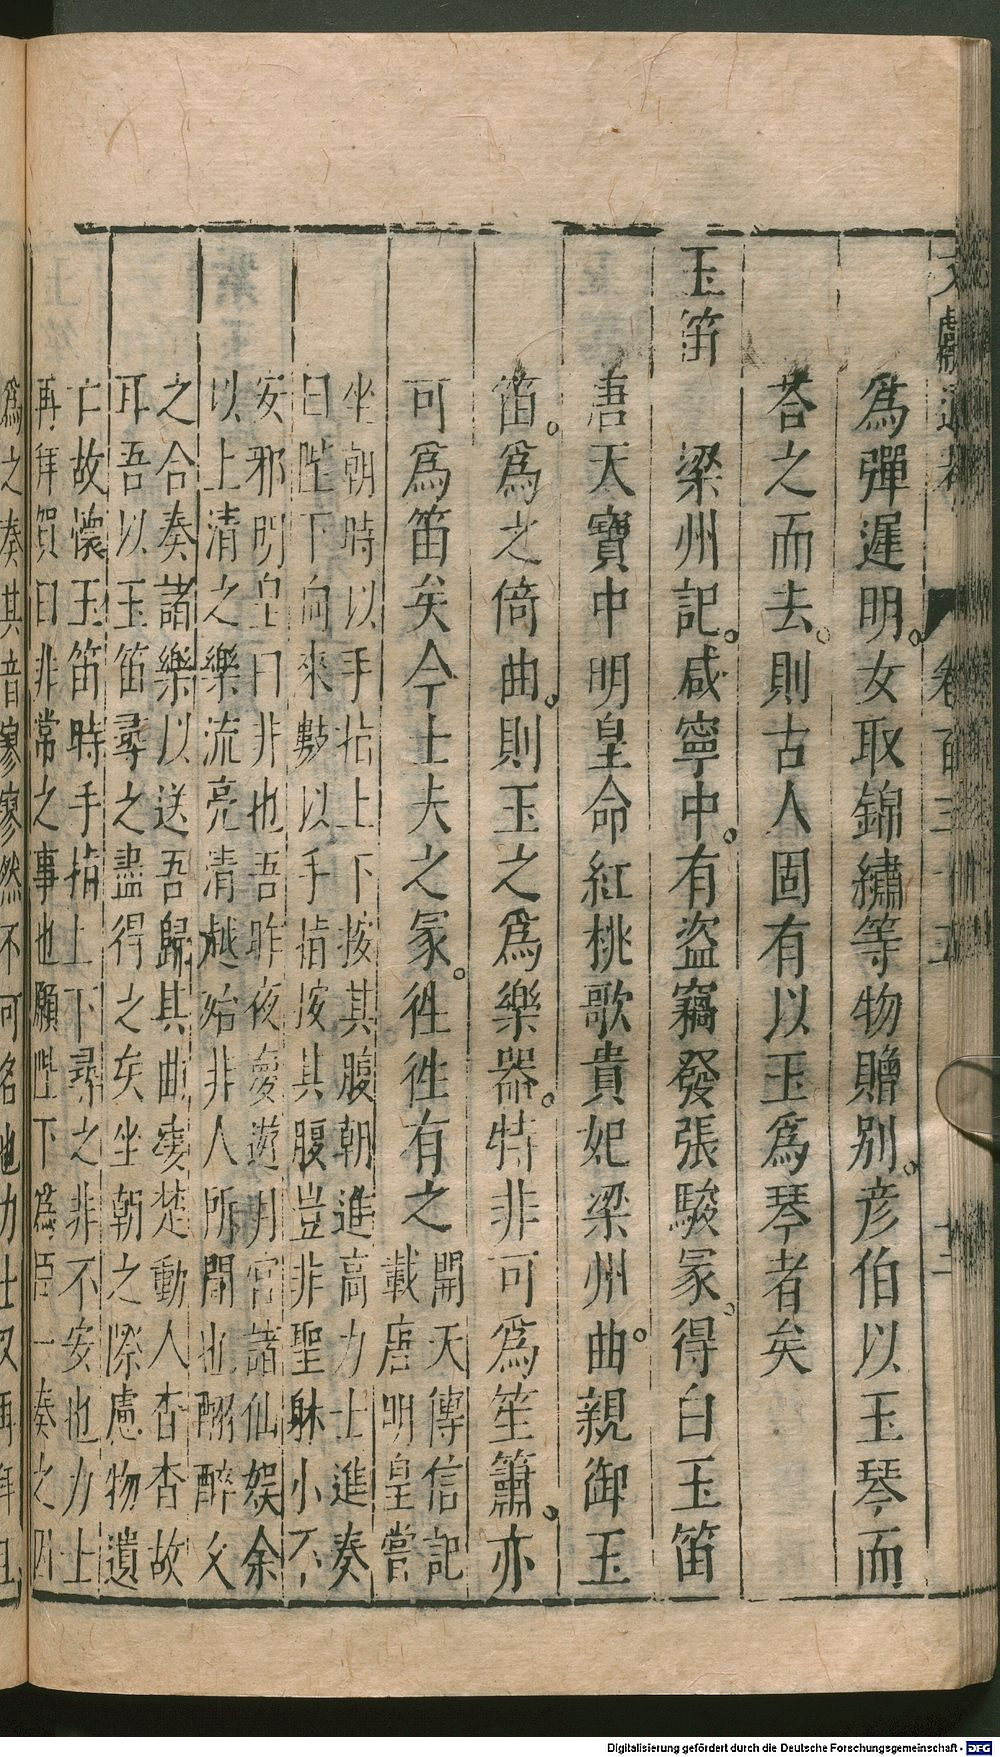 文獻通考 卷百三十五 十二
爲彈遲明。女取錦繡等物贈別。彥伯以玉琴而
荅之而去。則古人固有以玉爲琴者矣
玉笛
梁州記。咸寧中。有盜竊發張駿冢。得白玉笛
唐天寶中明皇命紅桃歌貴妃梁州曲。親御玉
笛。爲之倚曲。則玉之爲樂器。特非可爲笙簫。亦
可爲笛矣今士夫之冢。徃徃有之
開天傳信記
載唐明皇嘗
坐朝時以手指上下按其腹朝進高力士進奏
曰陛下向來數以手指按其腹豈非聖躰小不
安邪明皇曰非也吾昨夜夢遊月宮諸仙娱余
以上清之樂流亮清越始非人所聞也酣醉久
之合奏諸樂以送吾歸其曲凄楚動人杳杳故
耳吾以玉笛尋之盡得之矣坐朝之際慮物遺
亡故懷玉笛時手指上下尋之非不安也力士
再拜賀曰非常之事也願陛下爲臣一奏之因
爲之奏其音寥寥然不可名也力士又再拜且
Digitalisierung gefördert durch die Deutsche Forschungsgemeinschaft - DFG